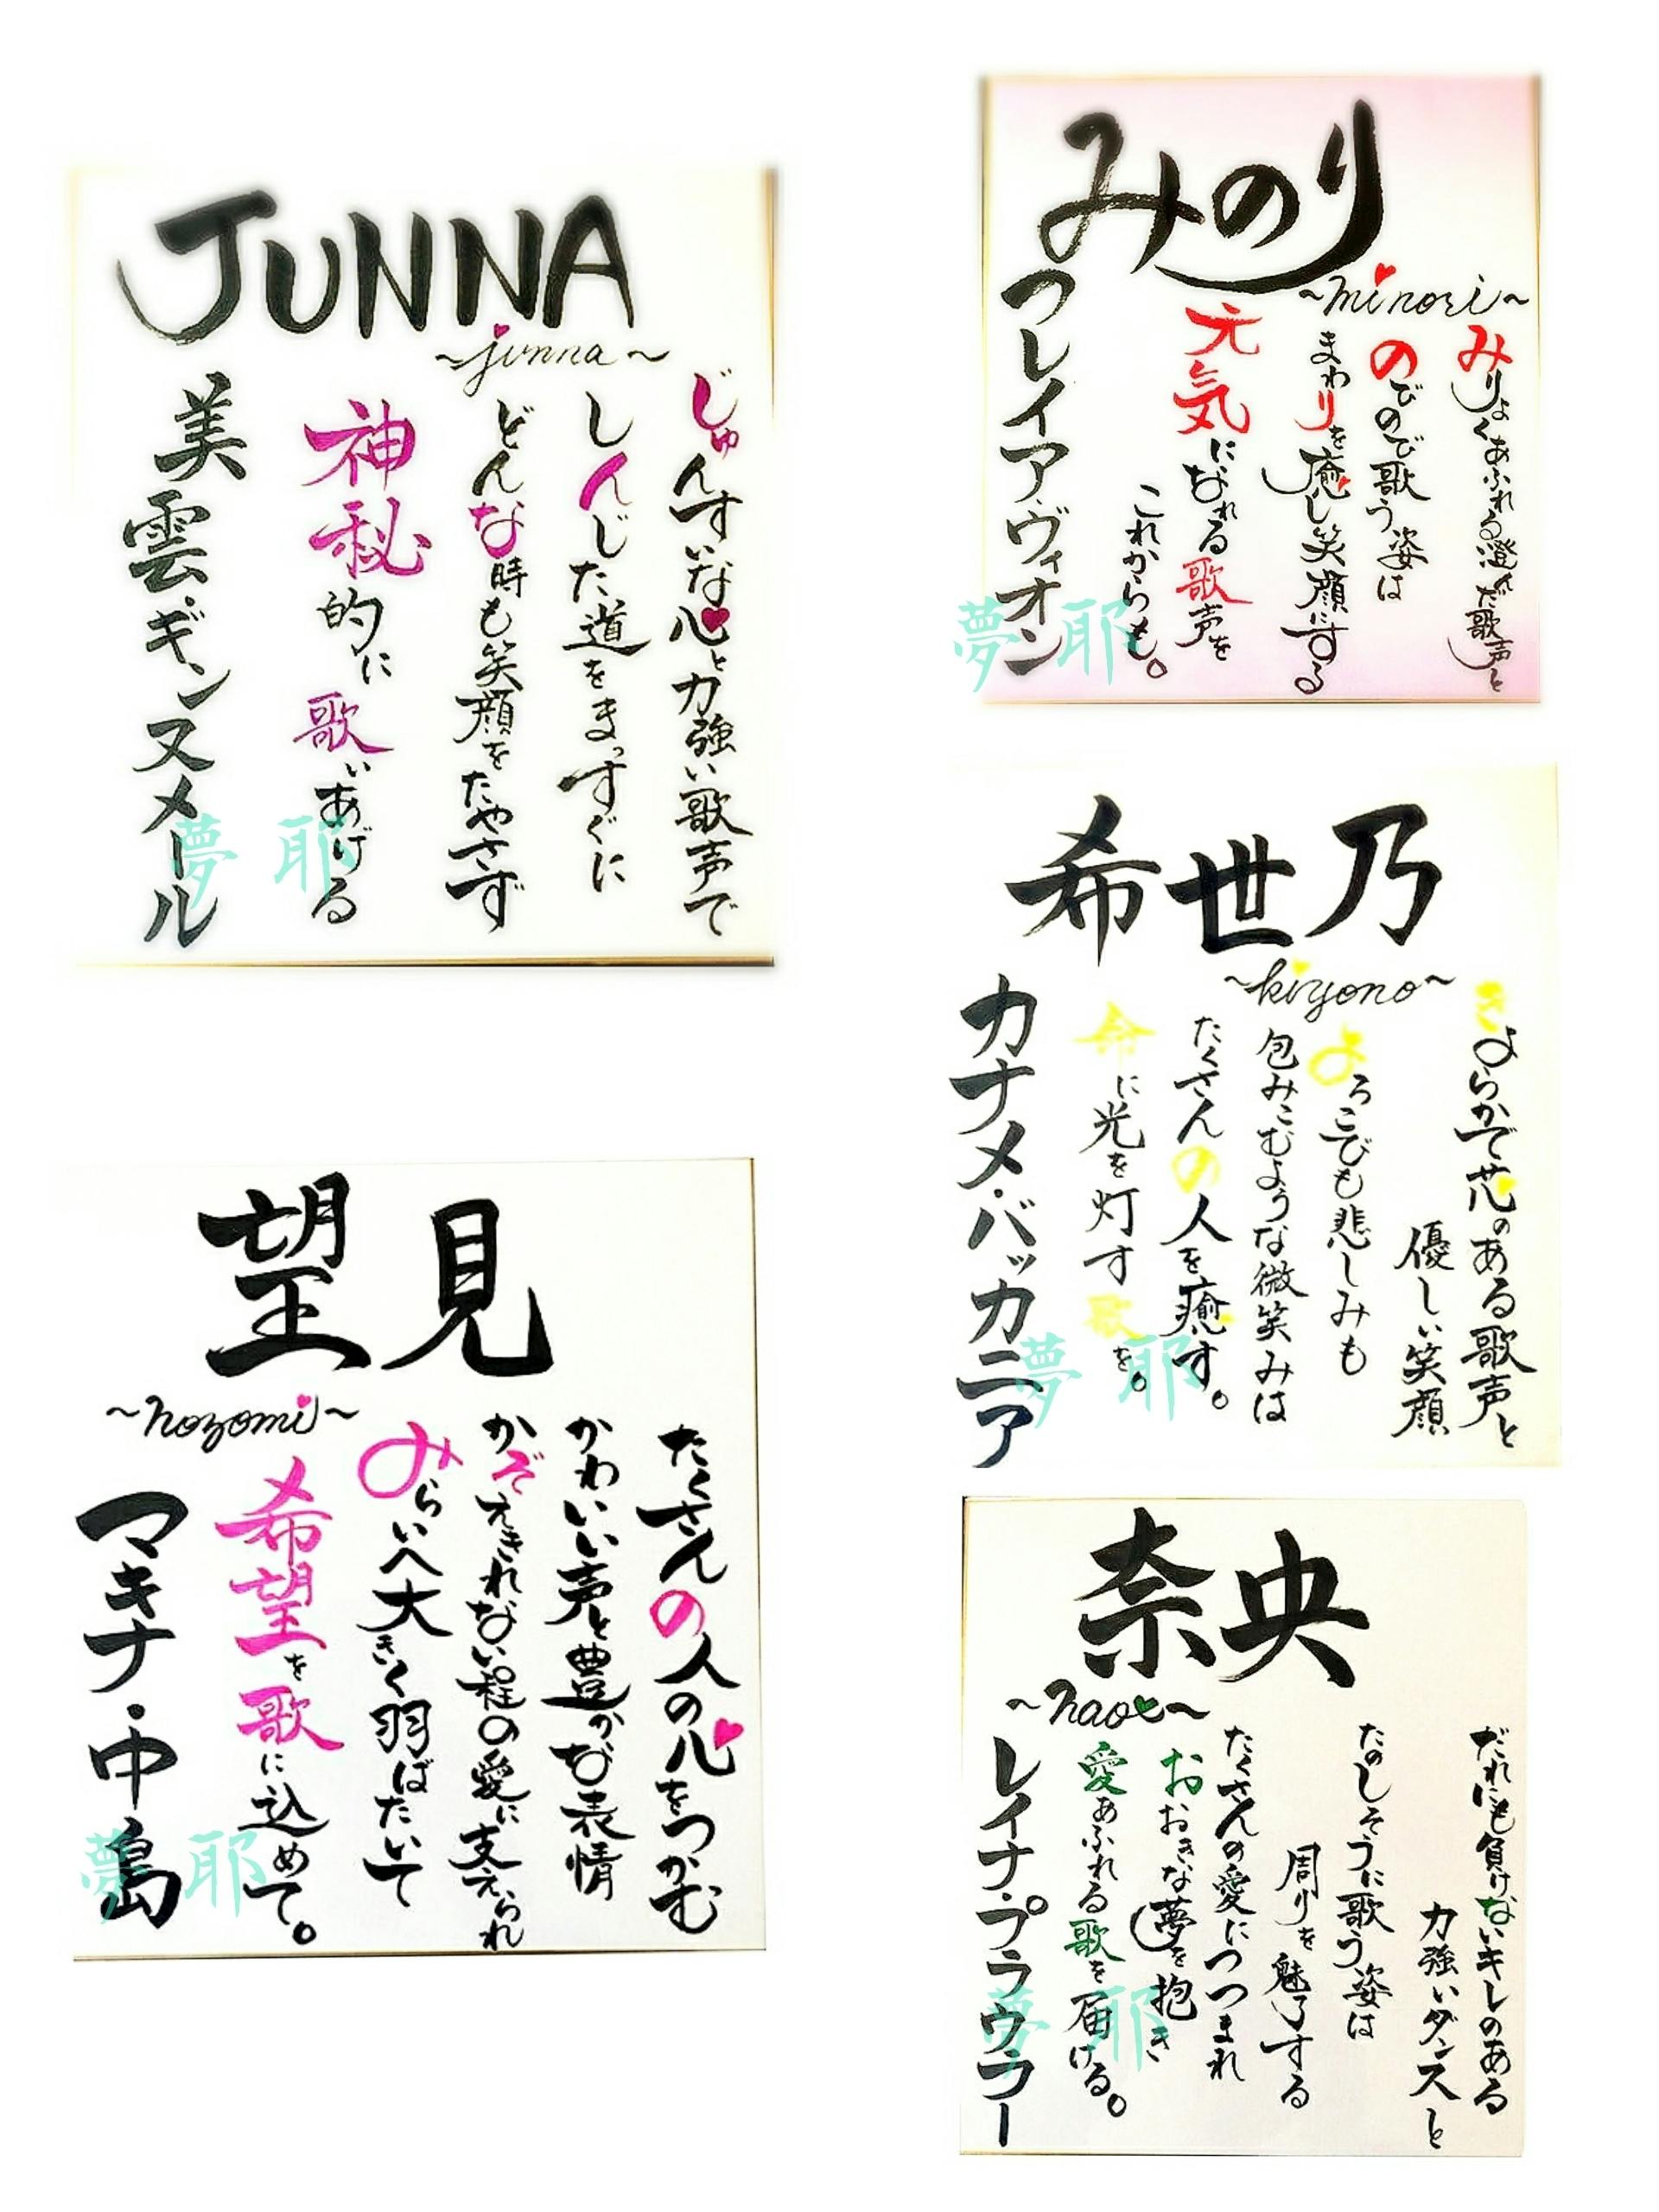 JUNNA
~junna~
じゅんすいな心と力強い歌声で
しんじた道をまっすぐに
どんな時も笑顔をたやさず
神秘的に歌いあげる
美雲・ギンヌメール
みのり
~minori~
みりょくあふれる澄んだ歌声と
のびのび歌う姿は
まわりを癒し笑顔にする
元気になれる歌声を
これからも。
フレイアヴィオン
希世乃
~kiyono~
きよらかで芯のある歌声と
優しい笑顔
よろこびも悲しみも
包みこむような微笑みは
たくさんの人を癒す。
命に光を灯す歌を。
カナメ・バッカニア
望見
~nozomi~
たくさんの人の心をつかむ
かわいい声と豊かな表情
かぞえきれない程の愛に支えられ
みらいへ大きく羽ばたいて
希望を歌に込めて。
マキナ・中島
奈央
~nao~
だれにも負けないキレのある
力強いダンスと
たのしそうに歌う姿は
周りを魅了する
たくさんの愛につつまれ
おおきな夢を抱き
愛あふれる歌を届ける。
レイナ・プラウラー
夢耶
夢耶
夢耶
夢耶
夢耶